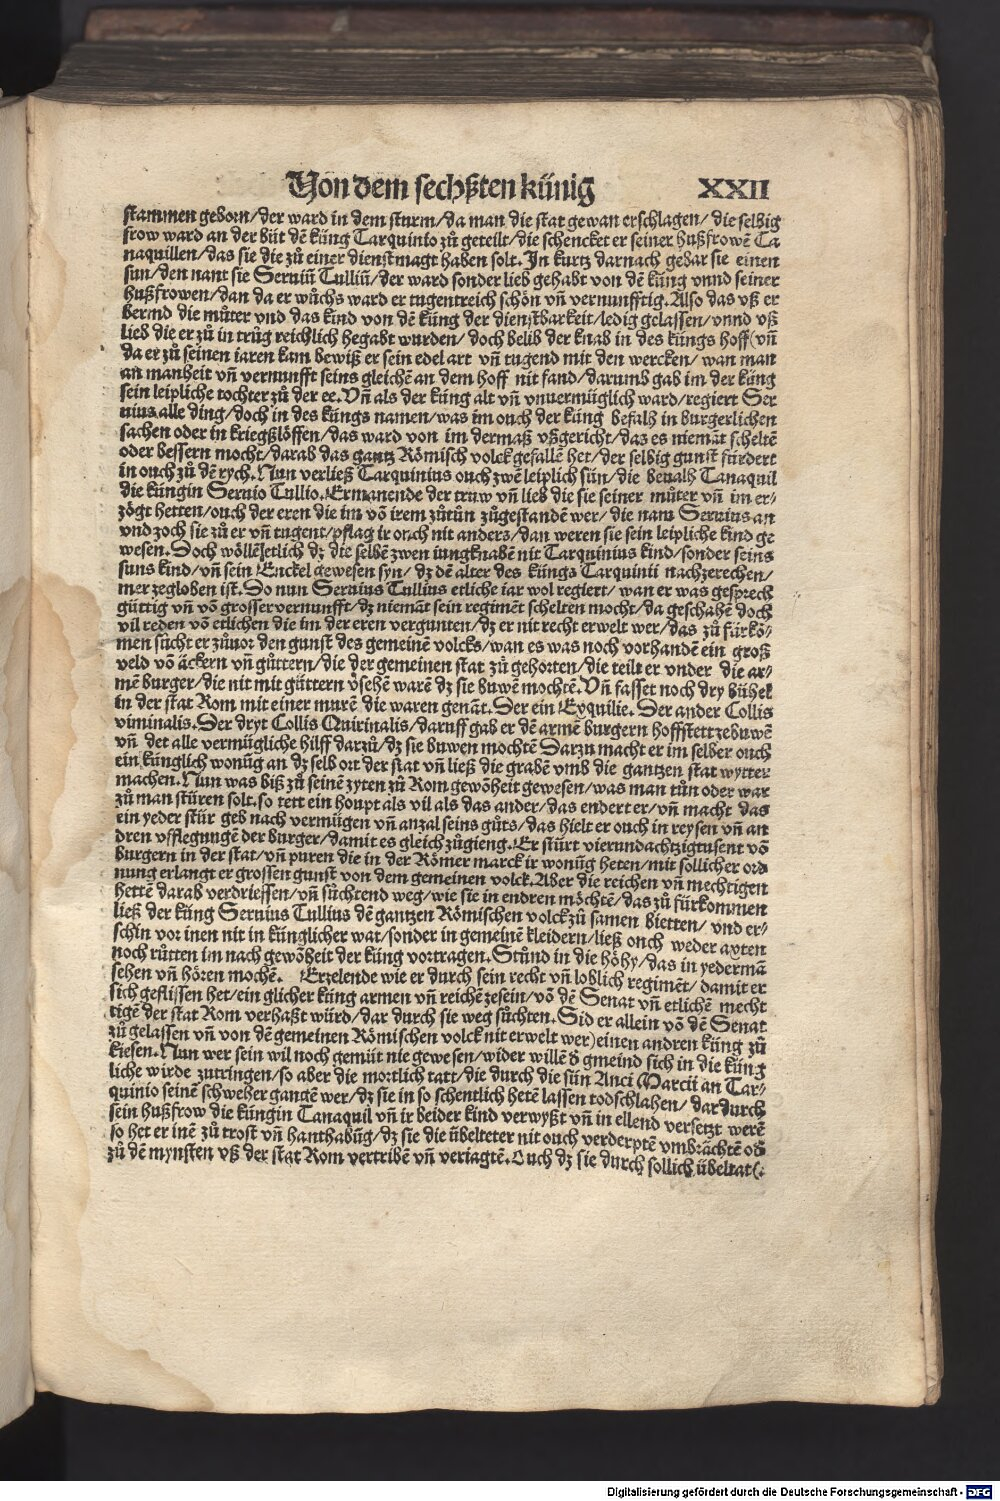 Von dem sechßten künig XXII
stammen geborn/der ward in dem sturm/da man die stat gewan erschlagen/ die selbig
frow ward an der büt dē küng Tarquinio zů geteilt/die schencket er seiner hußfrowē Ta
naquillen/das sie die zů einer dienstmagt haben solt. In kurtz darnach gebar sie einen
sun/den nant sie Seruiū Tulliū/der ward sonder lieb gehabt von dē küng vnnd seiner
hußfrowen/dan da er wůchs ward er tugentreich schön vñ vernunfftig. Also das vß er
bermd die můter vnd das kind von dē küng der dienstbarkeit/ledig gelassen/vnnd vß
lieb die er zů in trůg reichlich begabt wurden/doch belib der knab in des küngs hoff(vñ
da er zů seinen iaren kam bewiß er sein edel art vñ tugend mit den wercken/ wan man
an manheit vñ vernunfft seins gleichē an dem hoff nit fand/darumb gab im der küng
sein leipliche tochter zů der ee. Vñ als der küng alt vñ vnuermüglich ward/regiert Ser
uius alle ding/doch in des küngs namen/was im ouch der küng befalh in burgerlichen
sachen oder in kriegßlöffen/das ward von im dermaß vßgericht/das es niemāt scheltē
oder bessern mocht/darab das gantz Römisch volck gefallē het/der selbig gunst fürdert
in ouch zů dē rych. Nun verließ Tarquinius ouch zwē leiplich sün/die beualh Tanaquil
die küngin Seruio Tullio. Ermanende der truw vñ lieb die sie seiner můter vñ im er/
zögt hetten/ouch der eren die im vō irem zůtůn zůgestandē wer/ die nam Seruius an
vnd zoch sie zů er vñ tugent/pflag ir ouch nit anders/dan weren sie sein leipliche kind ge
wesen. Doch wöllē etlich dz die selbē zwen iungknabē nit Tarquinius kind/sonder seins
suns kind/vñ sein Enckel gewesen syn/ dz dē alter des küngs Tarquinii nachzerechen/
mer zegloben ist. So nun Seruius Tullius etliche iar wol regiert/ wan er was gesprech
güttig vñ vō grosser vernunfft/dz niemāt sein regimēt schelten mocht/da geschahē doch
vil reden vō etlichen die im der eren vergunten/dz er nit recht erwelt wer/das zů fürkō/
men sůcht er zůuor den gunst des gemeinē volcks/wan es was noch vorhandē ein groß
veld vō äckern vñ gůttern/die der gemeinen stat zů gehorten/die teilt er vnder die ar/
mē burger/die nit mit güttern v̄sehē warē dz sie buwē mochtē. Vñ fasset noch dry bühel
in der stat Rom mit einer murē die waren genāt. Der ein Eyquilie. Der ander Collis
viminalis. Der dryt Collis Quirinalis/daruff gab er dē armē burgern hoffstett zebuwē
vñ det alle vermügliche hilff darzů/dz sie buwen mochtē Darzu macht er im selber ouch
ein künglich wonūg an dz selb ort der stat vñ ließ die grabē vmb die gantzen stat wytter
machen. Nun was biß zů seinē zyten zů Rom gewōheit gewesen/was man tůn oder war
zů man stüren solt. so tett ein houpt als vil als das ander/das endert er/vñ macht das
ein yeder stür geb nach vermügen vñ anzal seins gůts/das hielt er ouch in reysen vñ an
dren vfflegungē der burger/damit es gleich zůgieng. Er stürt vierundachtzigtusent vō
burgern in der stat/vñ puren die in der Römer marck ir wonūg heten/mit sollicher ord
nung erlangt er grossen gunst von dem gemeinen volck. Aber die reichen vñ mechtigen
hettē darab verdriessen/vñ sůchtend weg/wie sie in endren mōchtē/das zů fürkommen
ließ der küng Seruius Tullius dē gantzen Römischen volck zů samen bietten/ vnd er/
schin vor inen nit in künglicher wat/sonder in gemeinē kleidern/ließ ouch weder axten
noch růtten im nach gewōheit der küng vortragen. Stůnd in die höhy/das in yedermā
sehen vñ hören mochē. Erzelende wie er durch sein recht vñ loblich regimēt/ damit er
sich geflissen het/ein glicher küng armen vñ reichē zesein/vō dē Senat vñ etlichē mecht
tigē der stat Rom verhaßt würd/dar durch sie weg sůchten. Sid er allein vō dē Senat
zů gelassen vñ von dē gemeinen Römischen volck nit erwelt wer)einen andren küng zů
kiesen. Nun wer sein wil noch gemüt nie gewesen/wider willē d̄ gmeind sich in die küng
liche wirde zutringen/so aber die mortlich tatt/die durch die sün Anci Marcii an Tar/
quinio seinē schweher gangē wer/dz sie in so schentlich hetē lassen todschlahen/ dardurch
sein hußfrow die küngin Tanaquil vñ ir beider kind verwyßt vñ in ellend versetzt werē
so het er inē zů trost vñ hanthabūg/dz sie die übelteter nit ouch verderptē vmbrächtē od̄
zů dē mynsten vß der stat Rom vertribē vñ veriagtē. Ouch dz sie durch sollich übeltat(.
Digitalisierung gefördert durch die Deutsche Forschungsgemeinschaft - DFG